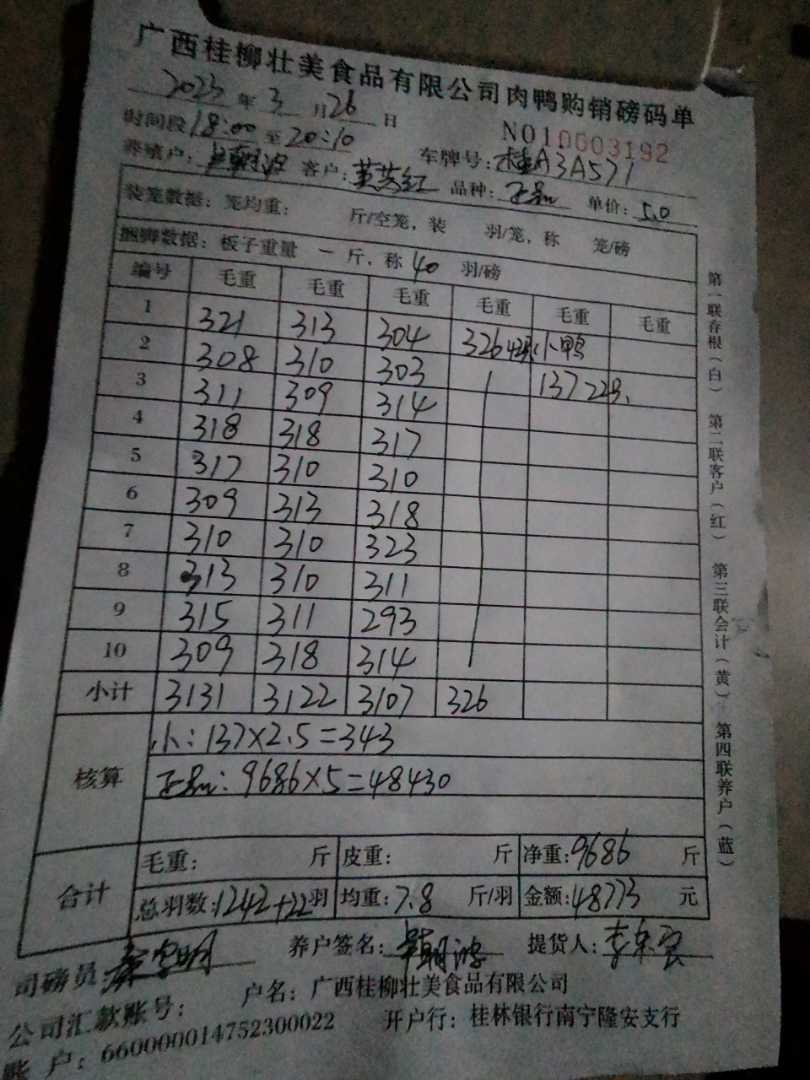 广西桂柳壮美食品有限公司肉鸭购销磅码单
2023年3月26日
N010003192
时间段18:00至20:10
养殖户: 客户:黄共红 车牌号:桂A3A571
品种:正品 单价:5.0
装笼数据:笼均重: 斤/空笼,装 羽/笼,称 笼/磅
捆脚数据:板子重量 一 斤,称40羽/磅
编号 毛重 毛重 毛重 毛重 毛重 毛重
1 321 313 304 326 42羽 小鸭
2 308 310 303 137 22羽
3 311 309 314
4 318 318 317
5 317 310 310
6 309 313 318
7 310 310 323
8 313 310 311
9 315 311 293
10 309 318 314
小计 3131 3122 3107 326
核算
小:137×2.5=343
正品:9686×5=48430
合计
毛重: 斤 皮重: 斤 净重:9686斤
总羽数:1242+22羽 均重:7.8斤/羽 金额:48773元
司磅员: 养户签名: 提货人:
公司汇款账号: 户名:广西桂柳壮美食品有限公司
账户:660000014752300022 开户行:桂林银行南宁隆安支行
第一联存根(白) 第二联客户(红) 第三联会计(黄) 第四联养户(蓝)